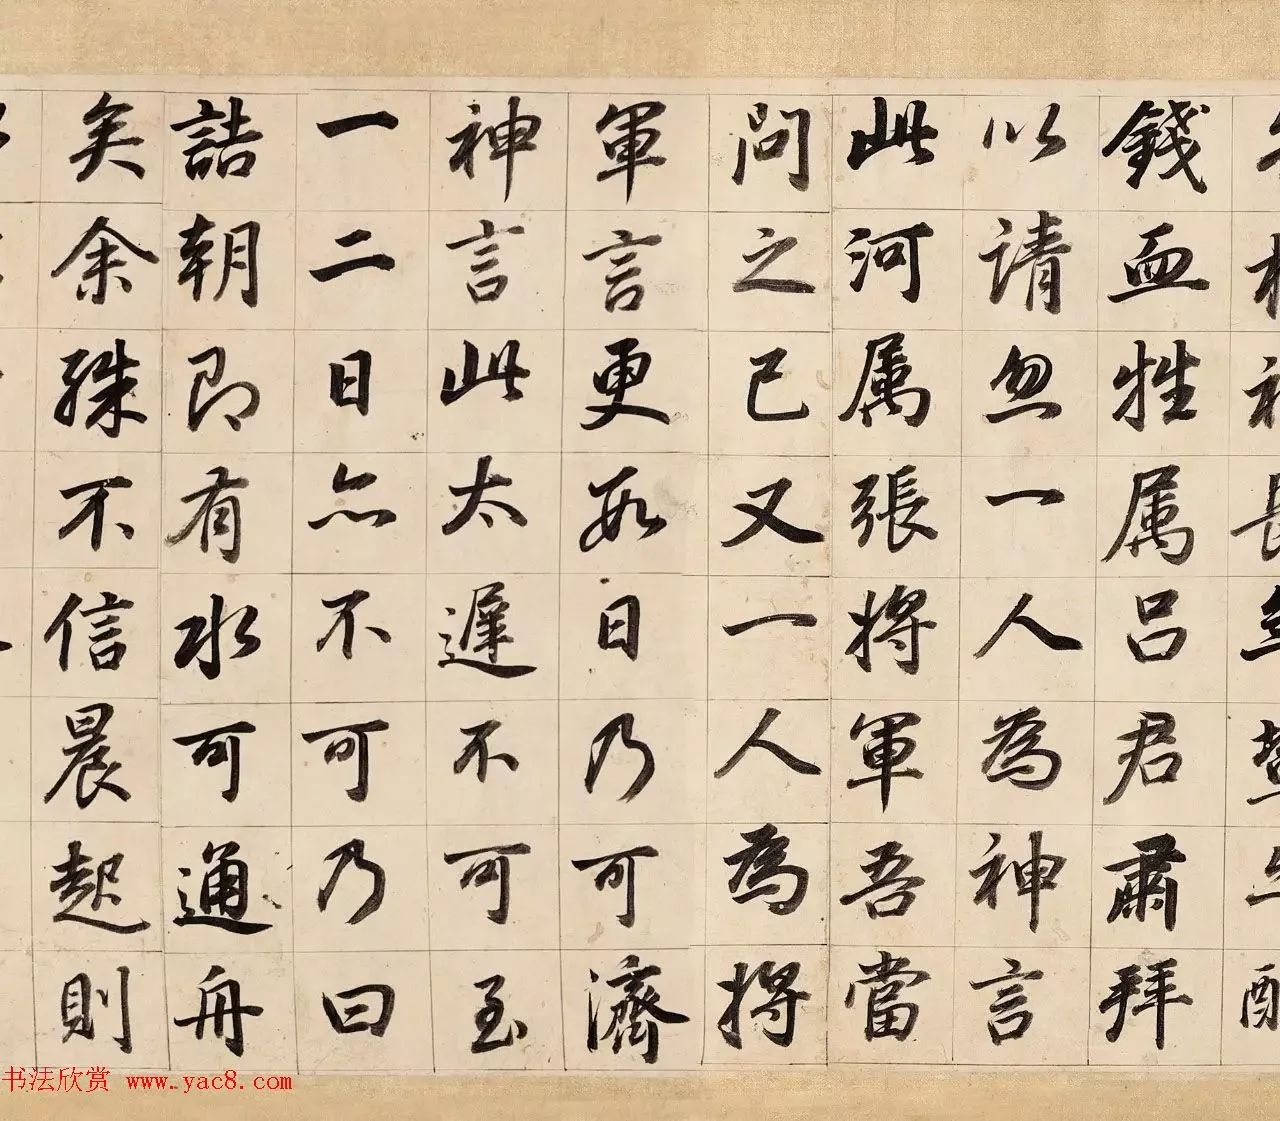 錢血牲属吕君肅拜
以请忽一人為神言
此河属張將軍吾當
問之已又一人為將
軍言更数日乃可濟
神言此太遲不可至
一二日亦不可乃曰
詰朝即有水可通舟
矣余殊不信晨起則
书法欣赏 www.yac8.com